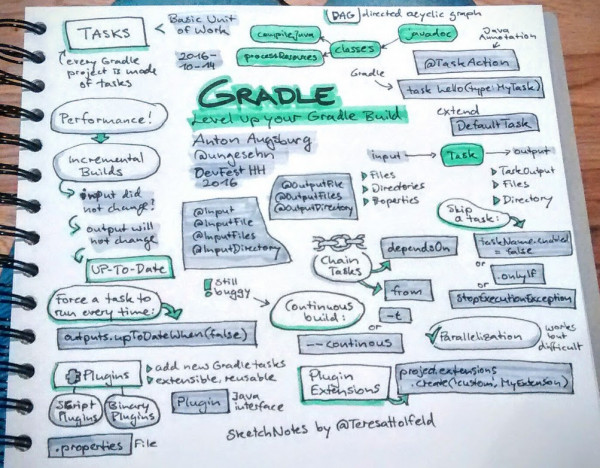 TASKS
< Basic Unit
of Work
every Gradle
project is made
of tasks
2016-
10-14
DAG directed acyclic graph
compileJava
processResources
classes
javadoc
Java
Annotation
@TaskAction
Gradle
task hello(type: MyTask)
extend
DefaultTask
GRADLE
Level up your Gradle Build
Anton Augsburg
@ungesehn
DevFest HH
2016
Performance!
Incremental
Builds
input did
not change?
output will
not change
UP-To-Date
Force a task to
run every time:
outputs.upToDateWhen(false)
input
Task
output
Files
Directories
Poperties
TaskOutput
Files
Directory
@Input
@InputFile
@InputFiles
@InputDirectory
@OutputFile
@OutputFiles
@OutputDirectory
Chain
Tasks
dependsOn
from
Skip
a task:
taskName.enabled
= false
or
.onlyIf
or
StopExecutionException
! Still
buggy
Continuous
build:
-t
or
--continous
Parallelization
works
but
difficult
Plugins
add new Gradle tasks
extensible, reusable
Script
Plugins
Binary
Plugins
Plugin
Java
interface
.properties File
Plugin
Extensions
project.extensions
.create('custom, MyExtension)
SketchNotes by @TeresaHolfeld